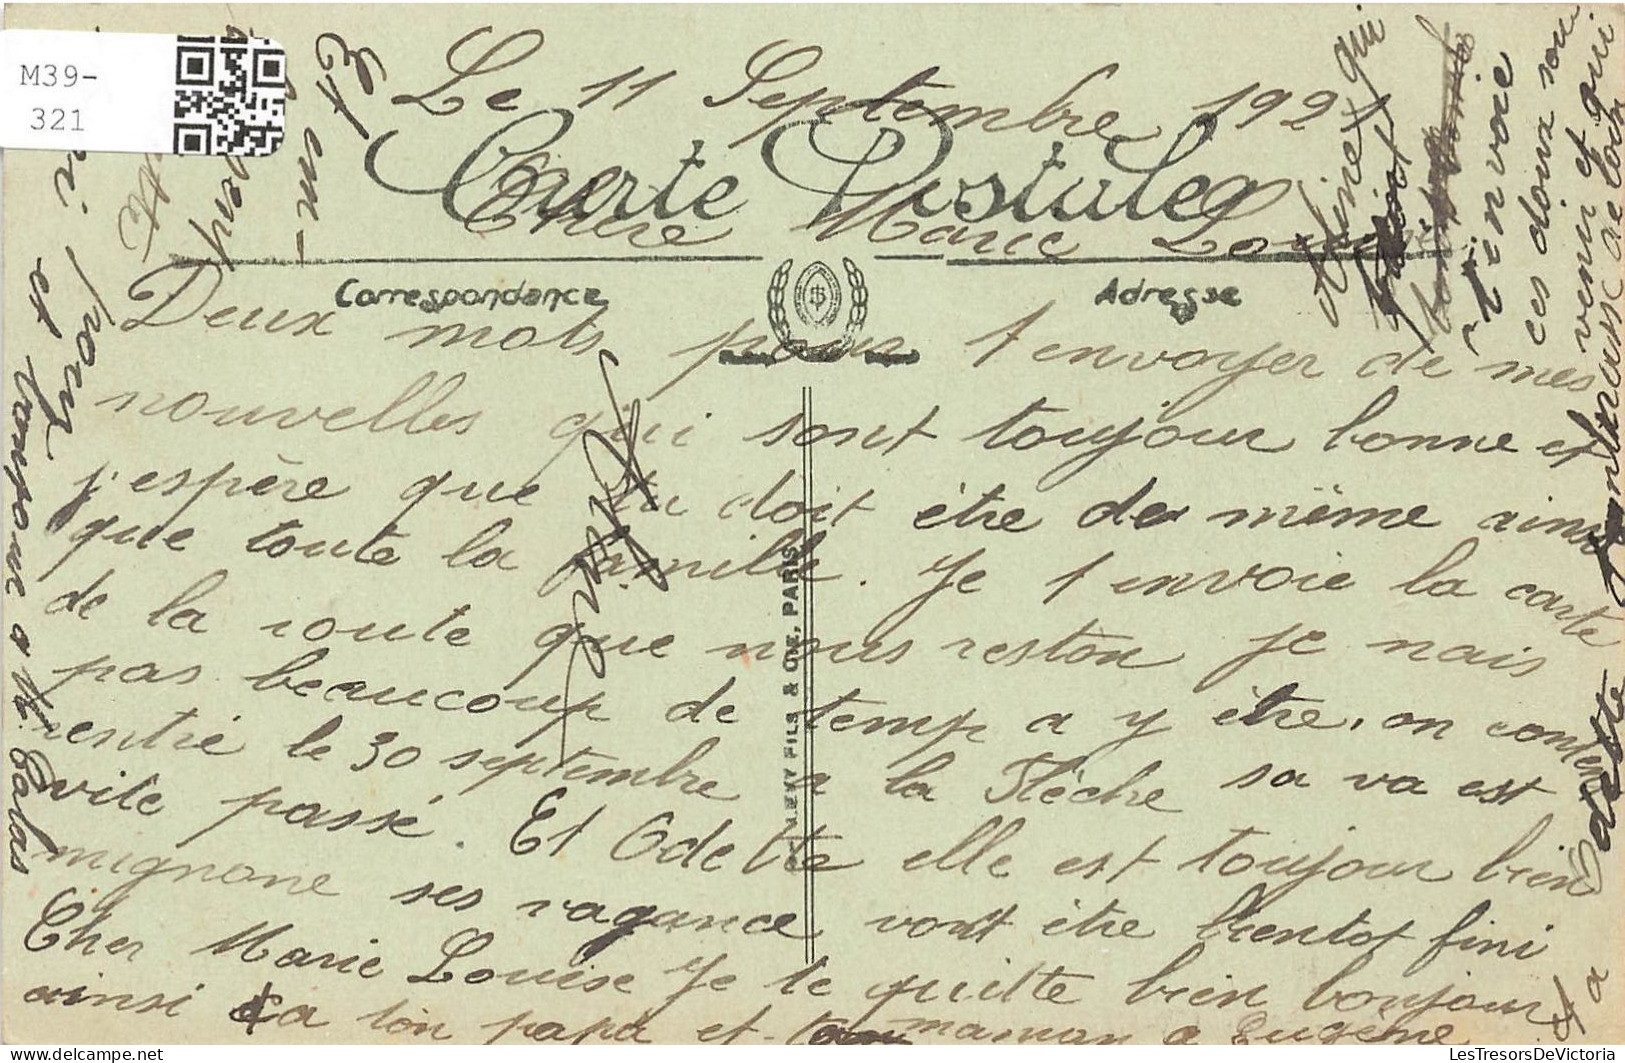 M39-
321
Le 11 Septembre 1921
Carte Postale
Chère Marie Louise
Correspondance
Adresse
Deux mots pour t envoyer de mes
nouvelles qui sont toujour bonne et
j'espère que tu doit être de même ainsi
que toute la famille. Je t envoie la carte
de la route que nous reston je nais
pas beaucoup de temp a y être, on conte
rentré le 30 septembre a la Flèche sa va est
vite passé. Et Odette elle est toujour bien
mignone ses vagance vont être bientot fini
Cher Marie Louise Je te quitte bien bonjour
ainsi ca ton papa et maman a Eugène
LEVY FILS & CIE, PARIS
et a
Odette
Aline qui
t'envoie
ces doux sou
venir et qui
de loin
Et em-
pour
et
LesTresorsDeVictoria.com